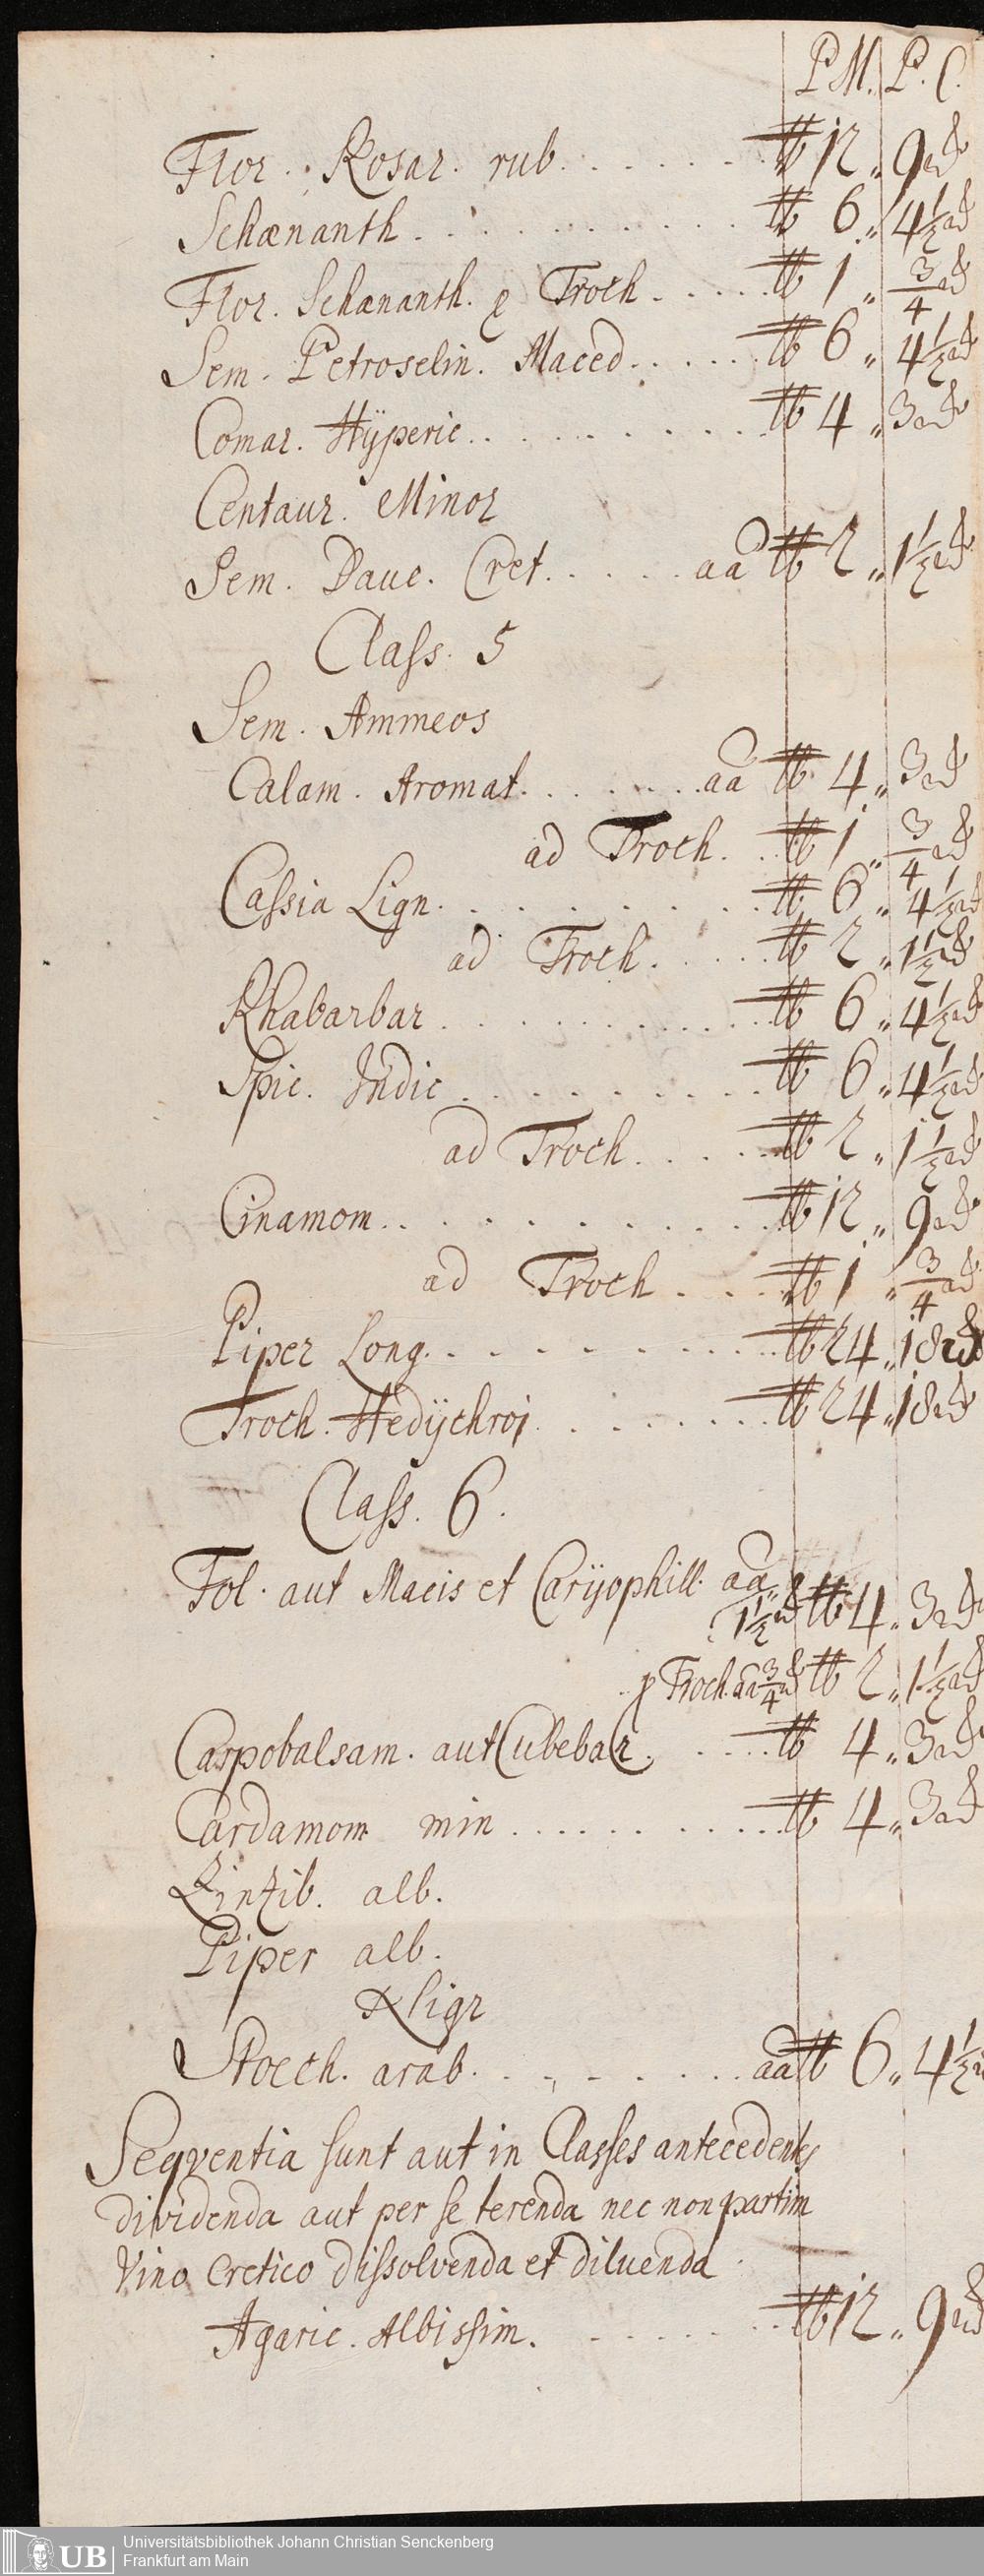 P M. P. C.
Flor. Rosar. rub. . . . . . . ℔ 12 „ 9 ад
Schænanth . . . . . . . . . . ℔ 6 „ 4½
Flor. Schænanth. p Troch . . . . . ℔ 1 „ ¾
Sem. Petroselin. Maced . . . . . ℔ 6 „ 4½
Comar. Hÿperic . . . . . . . . . ℔ 4 „ 3
Centaur. Minor
Sem. Dauc. Cret. . . . . . aa ℔ 2 „ 1½
Class. 5
Sem. Ammeos
Calam. Aromat. . . . . . . aa ℔ 4 „ 3
ad Troch. . . ℔ 1 „ ¾
Cassia Lign. . . . . . . . . . ℔ 6 „ 4½
ad Troch. . . . . . ℔ 2 „ 1½
Rhabarbar . . . . . . . . . . . ℔ 6 „ 4½
Spic. Indic . . . . . . . . . ℔ 6 „ 4½
ad Troch . . . . . ℔ 2 „ 1½
Cinamom . . . . . . . . . . . ℔ 12 „ 9
ad Troch . . . . ℔ 1 „ ¾
Piper Long. . . . . . . . . . ℔ 24 „ 18
Troch. Hedÿchroj . . . . . . . ℔ 24 „ 18
Class. 6.
Fol. aut Macis et Carÿophill. aa
1½ ℔ 4 „ 3
p Troch. aa ¾ ℔ 2 „ 1½
Carpobalsam. aut Cubebar . . . . . ℔ 4 „ 3
Cardamom min . . . . . . . . . . ℔ 4 „ 3
Zinzib. alb.
Piper alb.
& Nigr
Stoech. arab. . . . . . . . . aa ℔ 6 „ 4½
Seqventia sunt aut in Classes antecedentes
dividenda aut per se terenda nec non partim
Vino Cretico dissolvenda et diluenda
Agaric. Albissim. . . . . . . . ℔ 12 „ 9
UB Universitätsbibliothek Johann Christian Senckenberg
Frankfurt am Main